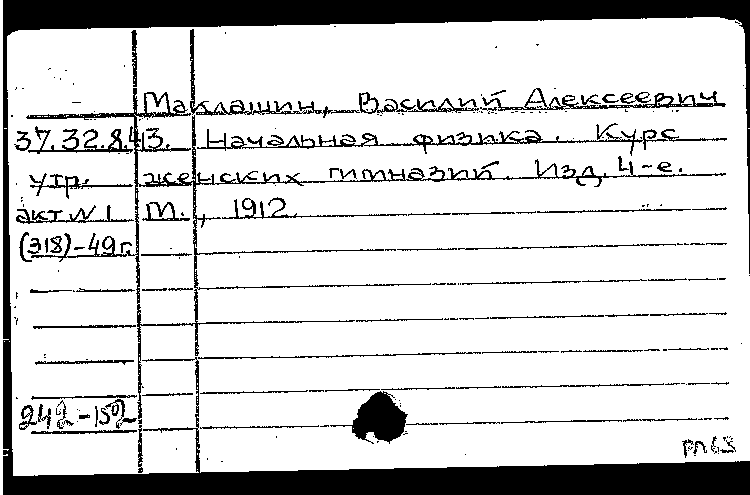 Маклашин, Василий Алексеевич
37.32.8.43. Начальная физика. Курс
утр. женских гимназий. Изд. 4-е.
акт N 1 М., 1912.
(318)-49г.
242-150